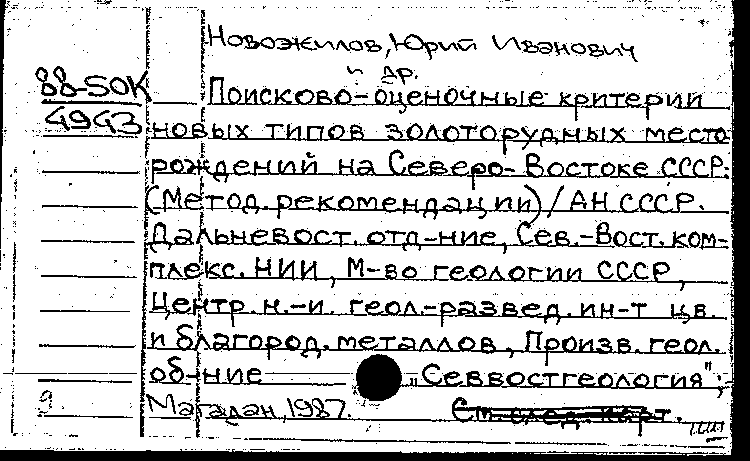 Новожилов, Юрий Иванович
и др.
88-50К
4943
Поисково-оценочные критерии
новых типов золоторудных место
рождений на Северо-Востоке СССР:
(Метод. рекомендации) / АН СССР.
Дальневост. отд-ние, Сев.-Вост. ком-
плекс. НИИ, М-во геологии СССР,
Центр. н.-и. геол.-развед. ин-т цв.
и благород. металлов, Произв. геол.
об-ние „Севвостгеология";
Магадан, 1987. См. след. карт.
9